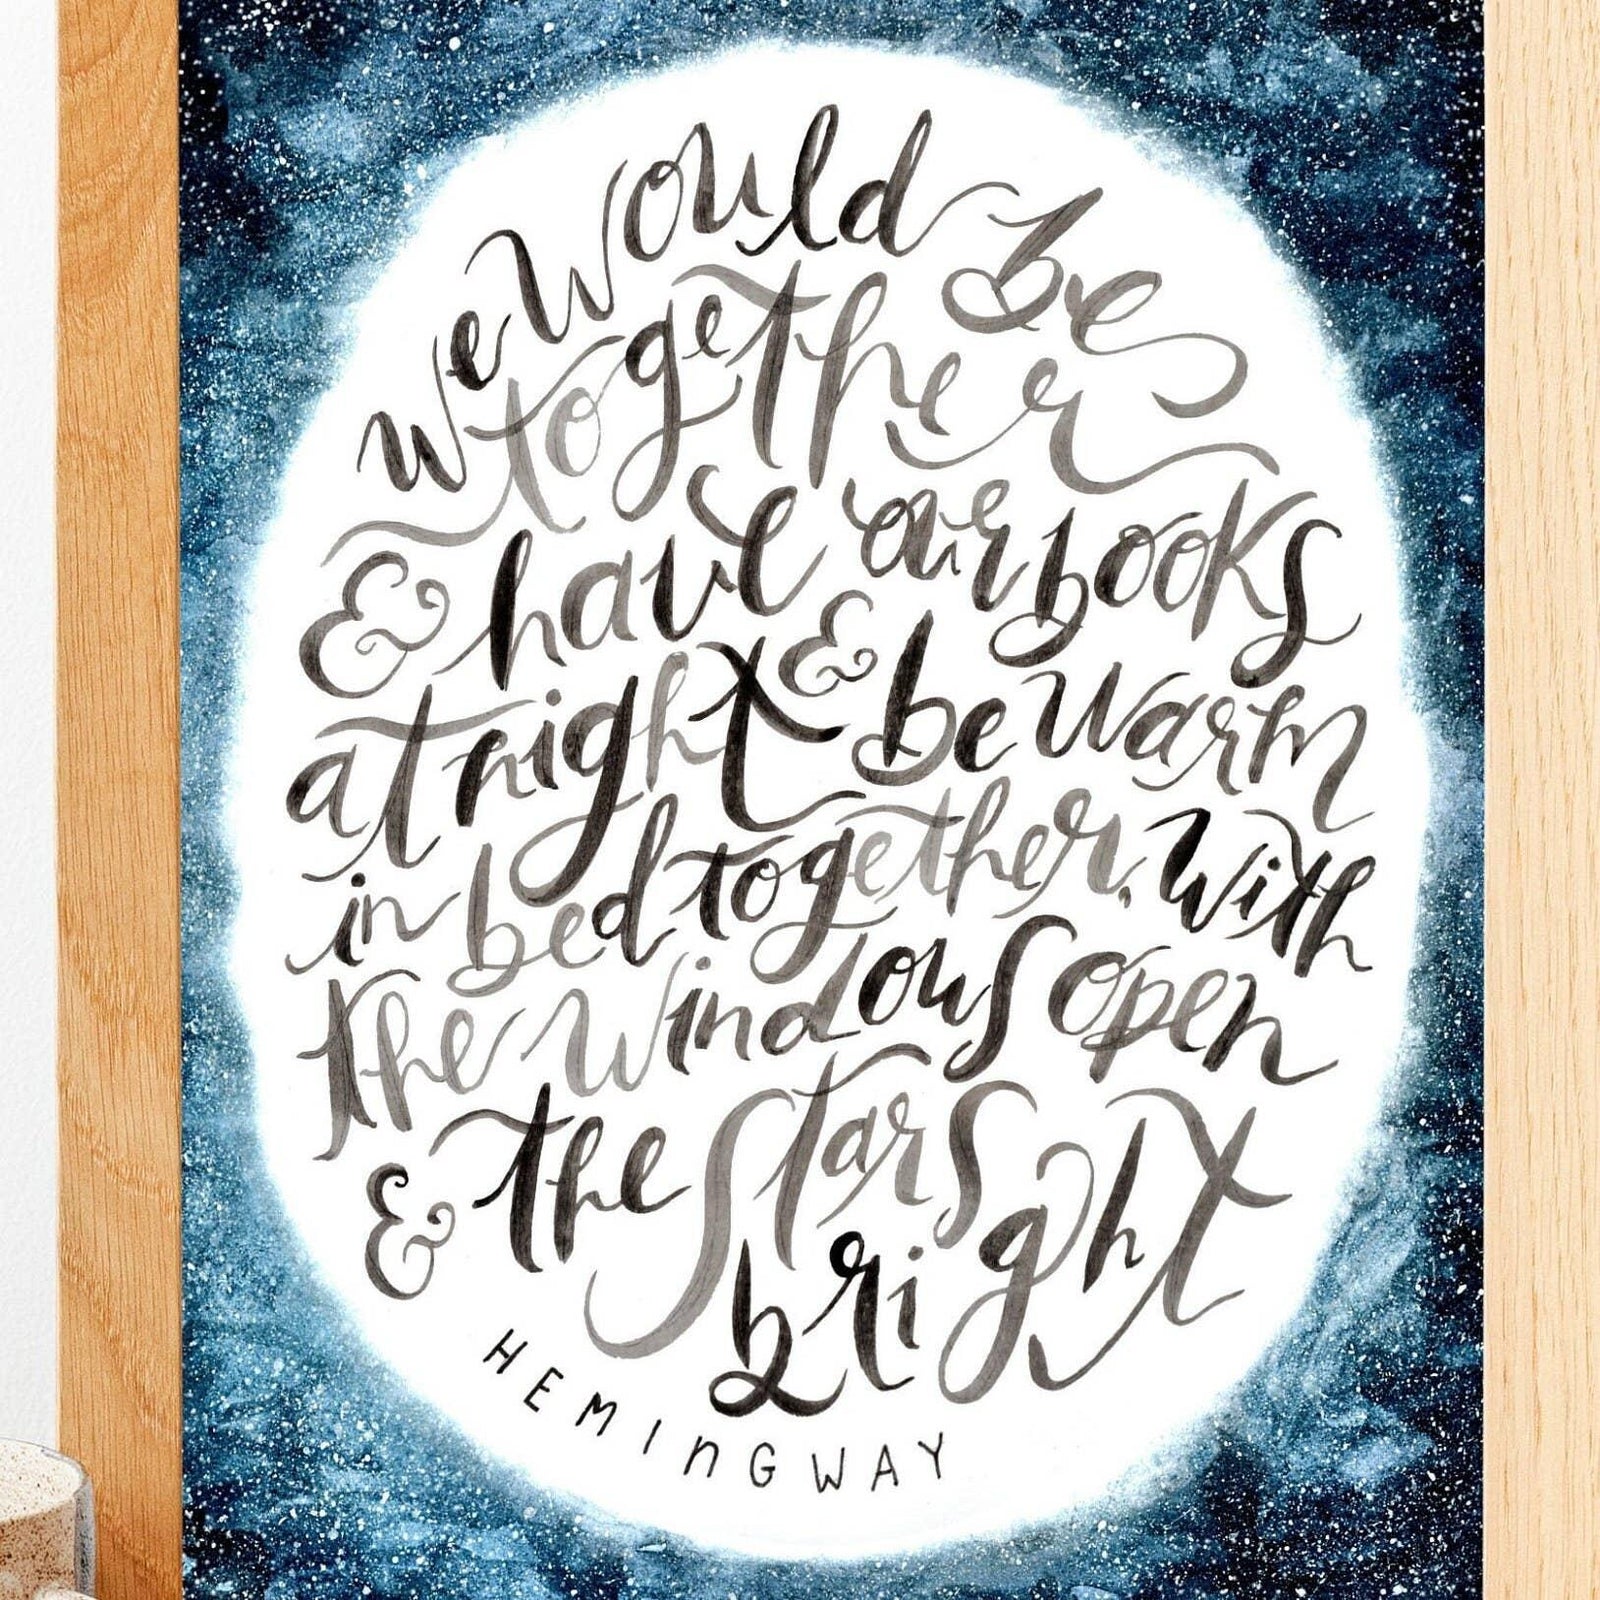 we would be
together
& have our books
at night & be warm
in bed together. with
the windows open
& the stars
bright
HEMINGWAY